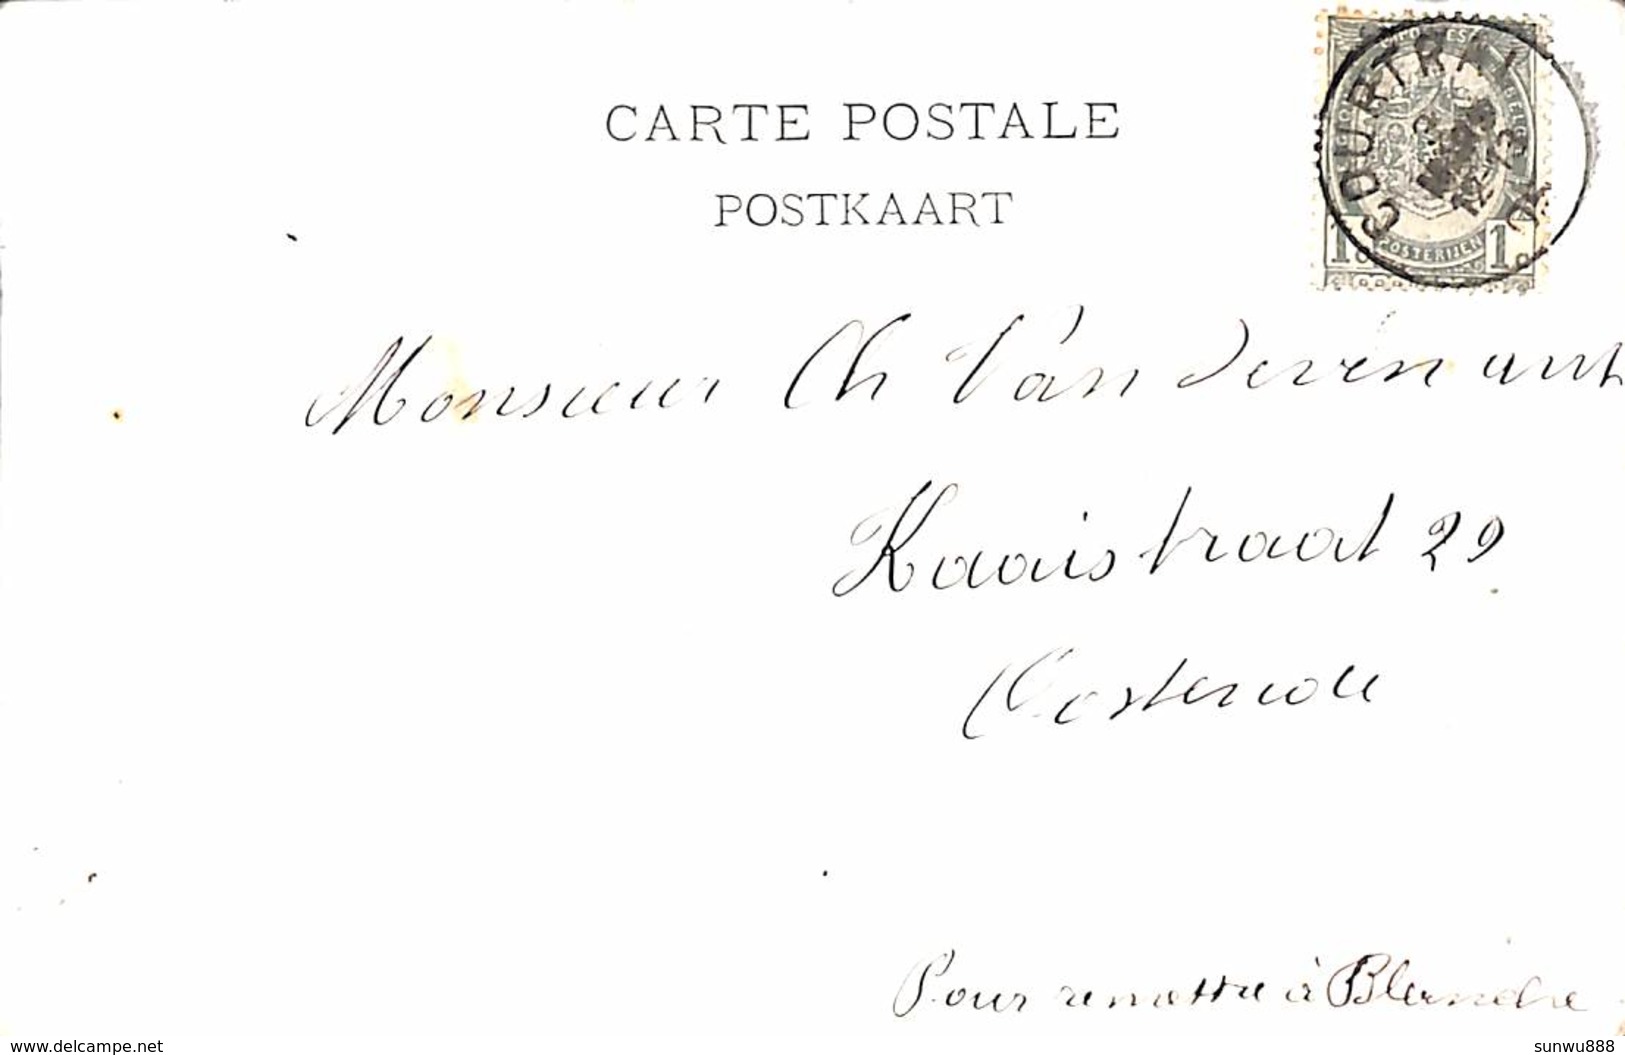 CARTE POSTALE
POSTKAART
COURTRAI
12-13
POSTERIJEN
1 c 1 c
Monsieur Ch Van
Kaaistraat 29
Oostende
Pour remettre à Blanche
www.delcampe.net
sunwu888